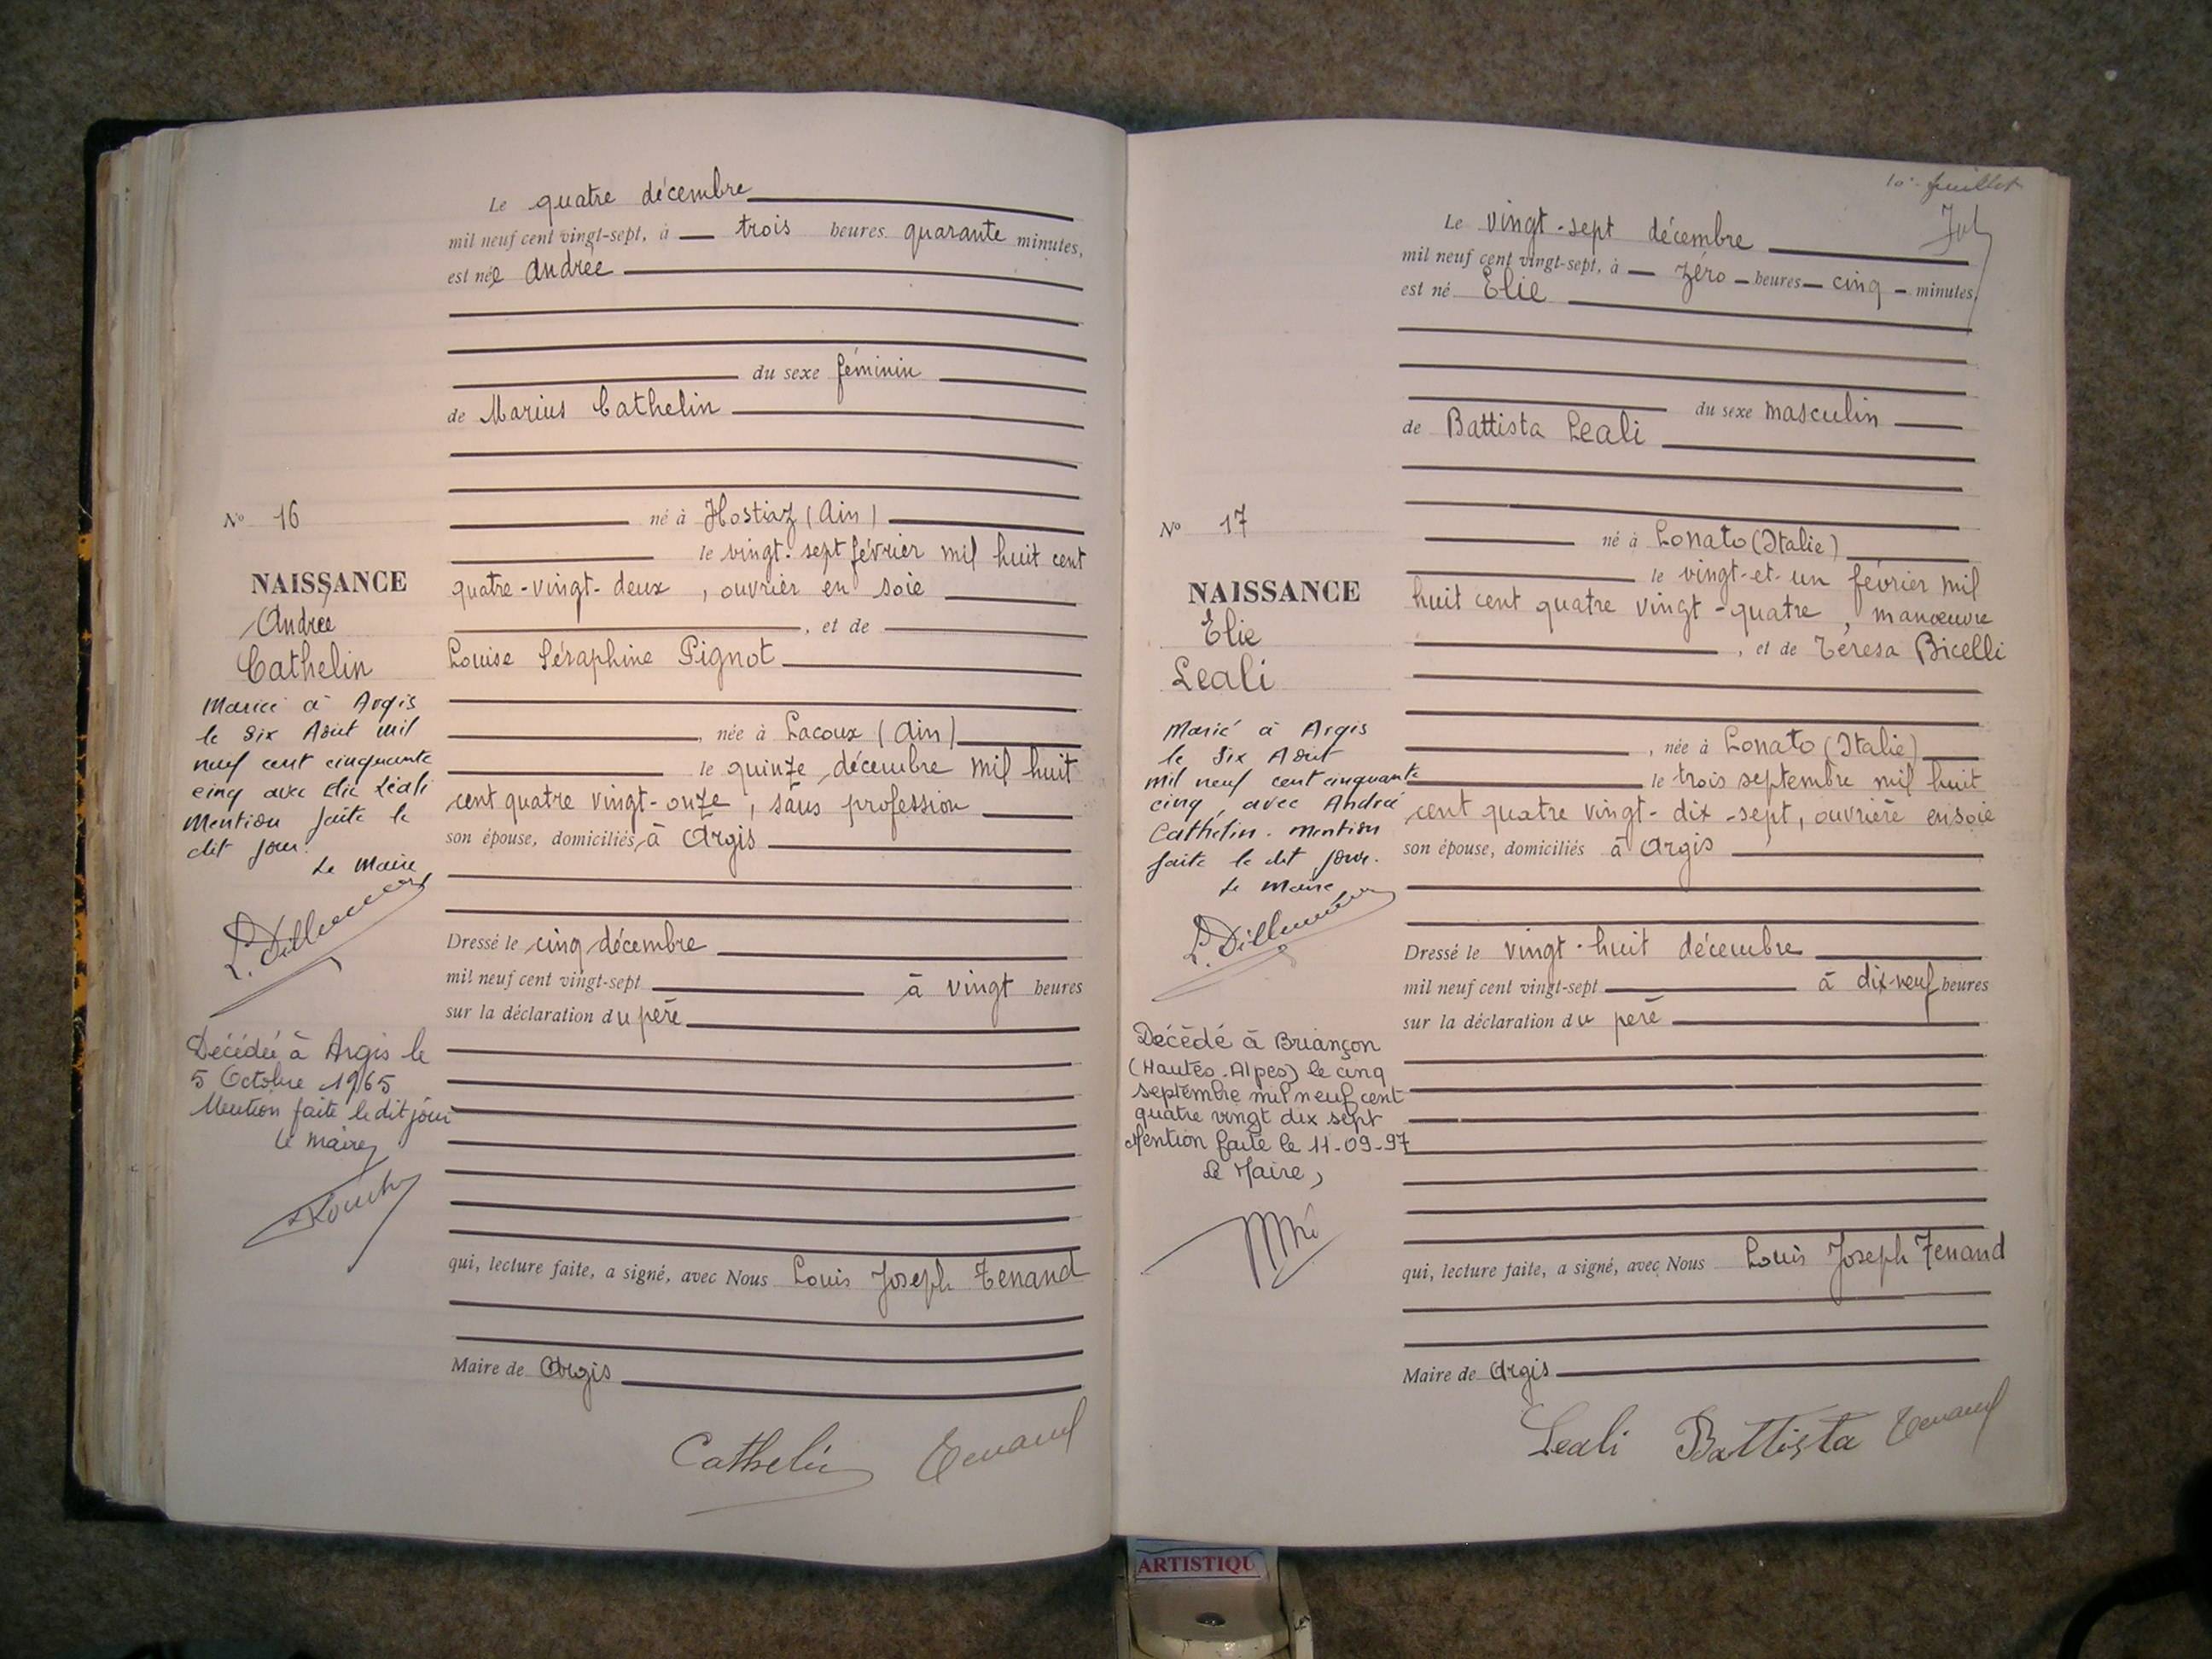 Le quatre décembre
mil neuf cent vingt-sept, à trois heures quarante minutes,
est née Andrée
du sexe féminin
de Marius Cathelin
né à Hostiaz (Ain)
le vingt-sept février mil huit cent
quatre-vingt-deux, ouvrier en soie
, et de
Louise Séraphine Pignot
, née à Lacoux (Ain)
le quinze décembre mil huit
cent quatre vingt-onze, sans profession
son épouse, domiciliés à Argis
Dressé le cinq décembre
mil neuf cent vingt-sept à vingt heures
sur la déclaration du père
qui, lecture faite, a signé, avec Nous Louis Joseph Tenand
Maire de Argis
Cathelin Tenand
N° 16
NAISSANCE
Andrée
Cathelin
Mariée à Argis
le Six Août mil
neuf cent cinquante
cinq avec Elie Léali
Mention faite le
dit jour.
Le Maire
L. Dillemann
Décédée à Argis le
5 Octobre 1965
Mention faite le dit jour
Le Maire,
10e feuillet
Le vingt-sept décembre
mil neuf cent vingt-sept, à zéro heures cinq minutes,
est né Elie
du sexe masculin
de Battista Leali
né à Lonato (Italie)
le vingt-et-un février mil
huit cent quatre vingt-quatre, manœuvre
, et de Térésa Bicelli
, née à Lonato (Italie)
le trois septembre mil huit
cent quatre vingt-dix-sept, ouvrière en soie
son épouse, domiciliés à Argis
Dressé le vingt-huit décembre
mil neuf cent vingt-sept à dix-neuf heures
sur la déclaration du père
qui, lecture faite, a signé, avec Nous Louis Joseph Tenand
Maire de Argis
Leali Battista Tenand
N° 17
NAISSANCE
Elie
Leali
Marié à Argis
le Six Août
mil neuf cent cinquante
cinq, avec Andrée
Cathelin. Mention
faite le dit jour.
Le Maire
L. Dillemann
Décédé à Briançon
(Hautes-Alpes) le cinq
septembre mil neuf cent
quatre vingt dix sept
Mention faite le 11-09-97
Le Maire,
ARTISTIQU